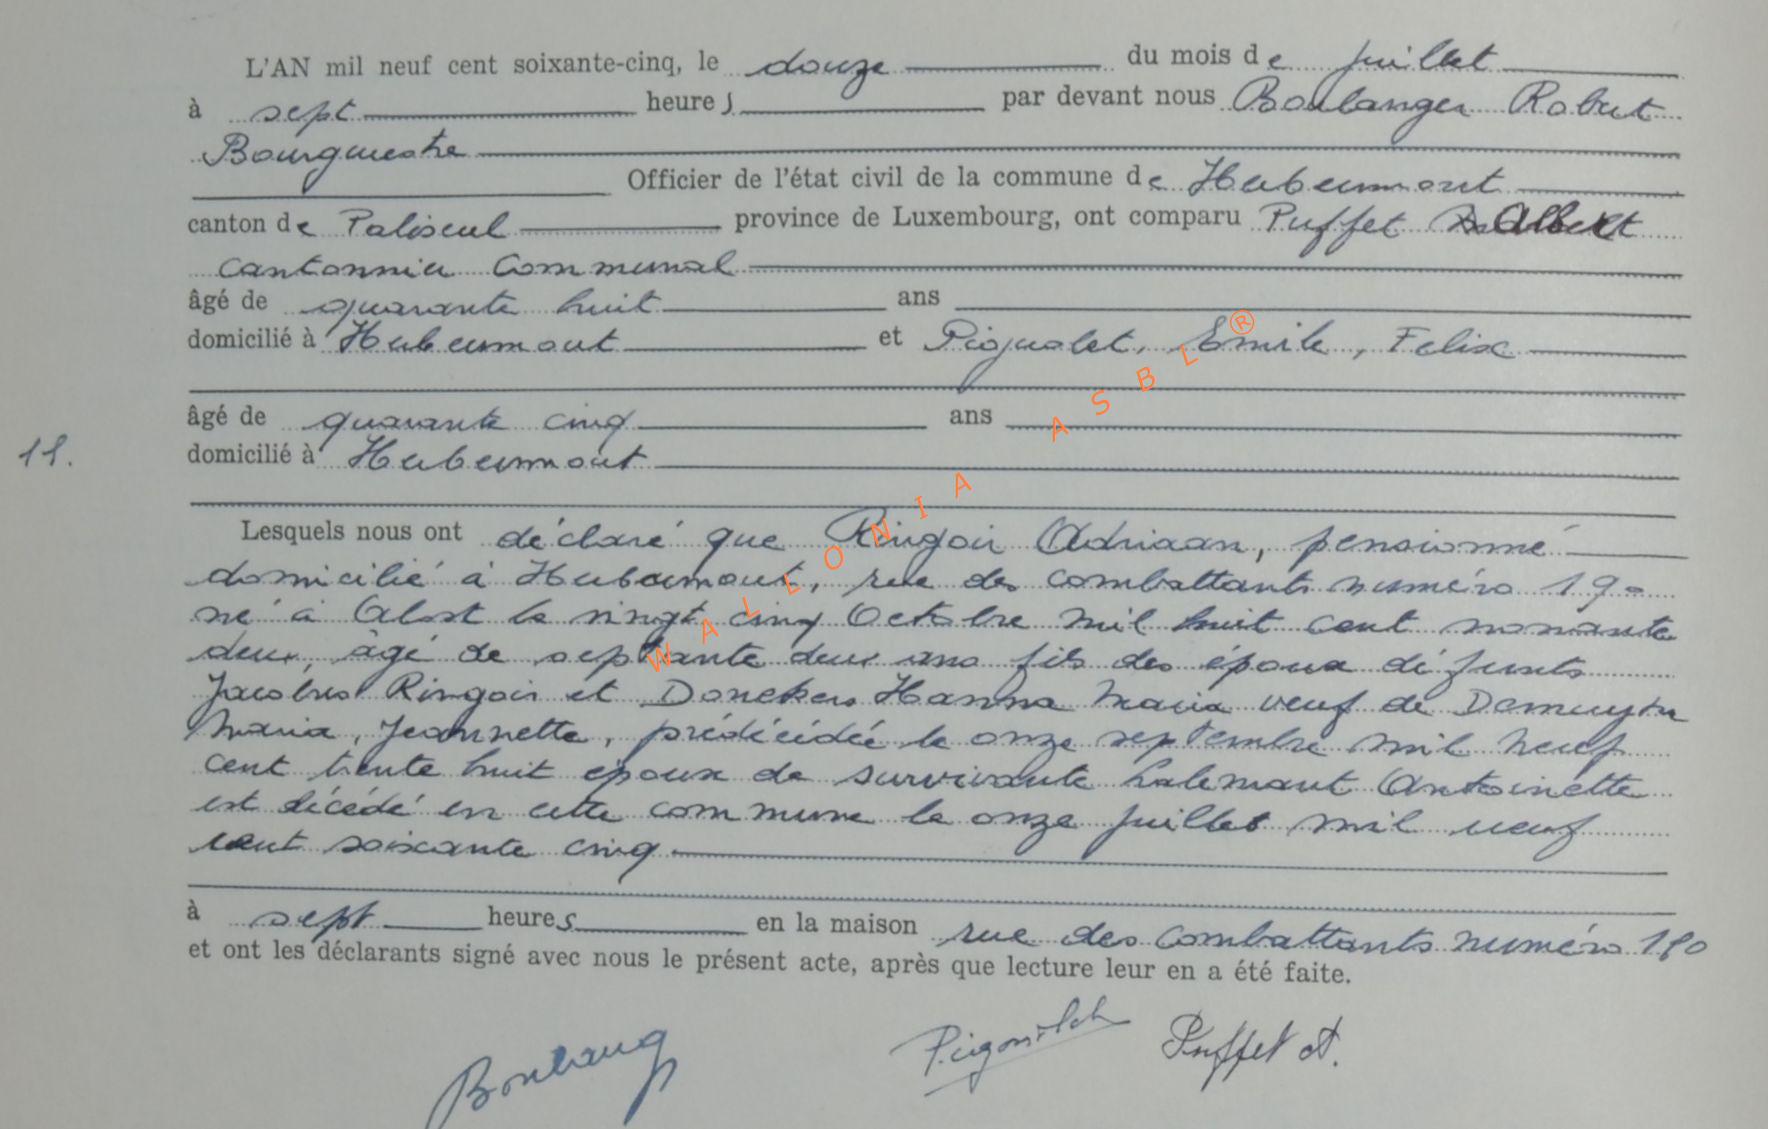 L'AN mil neuf cent soixante-cinq, le douze du mois de juillet
à sept heures par devant nous Boulanger Robert
Bourgmestre
Officier de l'état civil de la commune de Herbeumont
canton de Paliseul province de Luxembourg, ont comparu Puffet Albert
cantonnier communal
âgé de quarante huit ans
domicilié à Herbeumont et Pignolet, Emile, Felix
âgé de quarante cinq ans
11. domicilié à Herbeumont
Lesquels nous ont déclaré que Ringoir Adriaan, pensionné
domicilié à Herbeumont, rue des combattants numéro 190
né à Alost le vingt cinq Octobre mil huit cent nonante
deux, âgé de septante deux ans fils des époux défunts
Jacobus Ringoir et Donckers Hanna Maria veuf de
Maria, Jeannette, prédécédée le onze septembre mil neuf
cent trente huit epoux de survivante Halemaut Antoinette
est décédé en cette commune le onze juillet mil neuf
cent soixante cinq
à sept heures en la maison rue des combattants numéro 190
et ont les déclarants signé avec nous le présent acte, après que lecture leur en a été faite.
Puffet A.
WALLONIA ASBL®